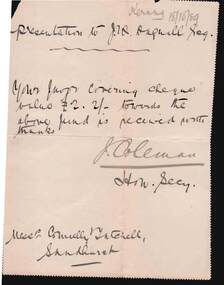 Kerang
18/10/89
Presentation to J.H. Dagnall Esq.
Your favor covering cheque
value £2.2/- towards the
above fund is received with
thanks
J. Coleman
Hon. Secy.
Messrs Connelly Tatchell,
Sandhurst